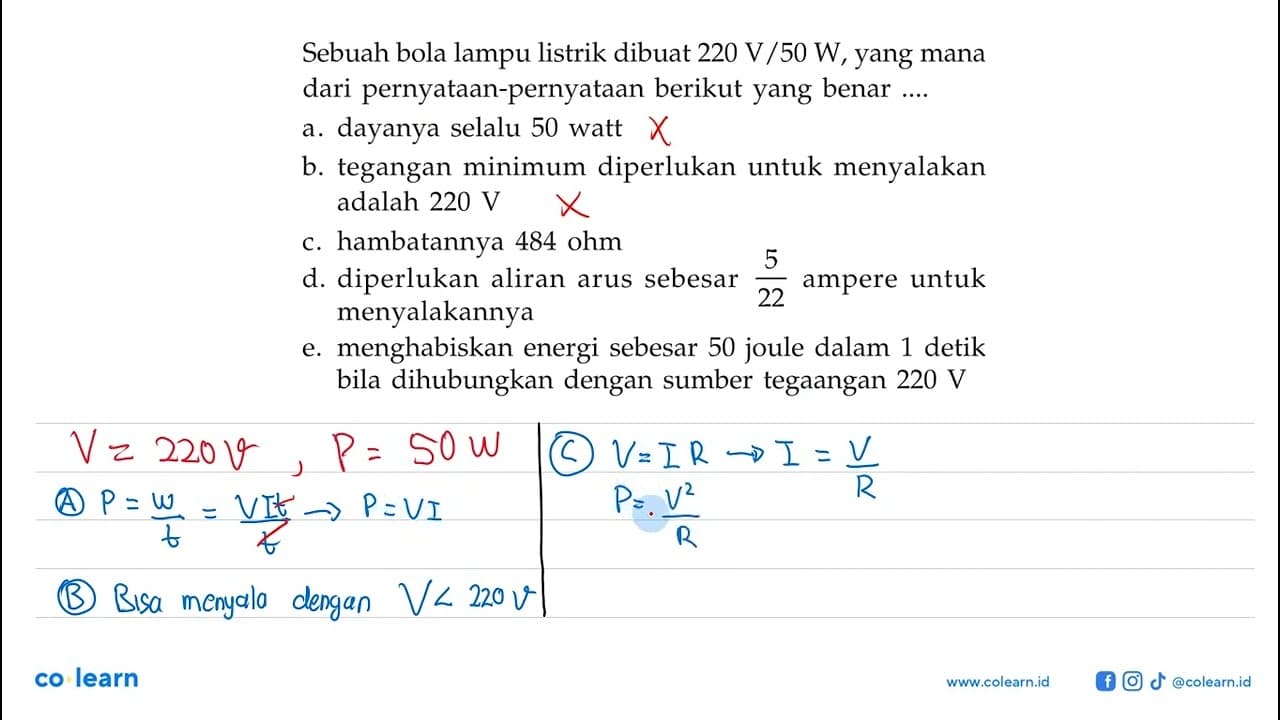 Sebuah bola lampu listrik dibuat 220 V/50 W, yang mana
dari pernyataan-pernyataan berikut yang benar ....
a. dayanya selalu 50 watt X
b. tegangan minimum diperlukan untuk menyalakan
adalah 220 V X
c. hambatannya 484 ohm
d. diperlukan aliran arus sebesar 5/22 ampere untuk
menyalakannya
e. menghabiskan energi sebesar 50 joule dalam 1 detik
bila dihubungkan dengan sumber tegaangan 220 V
V = 220 V, P = 50 W
A P = W/t = VIt/t → P = VI
B Bisa menyala dengan V < 220 V
C V = I R → I = V/R
P = V²/R
co learn
www.colearn.id
@colearn.id